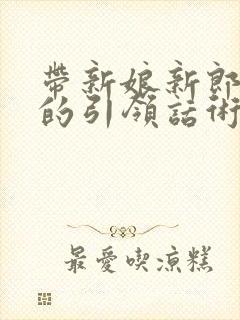 帶新娘新郎
的引領話術
最愛喫涼糕